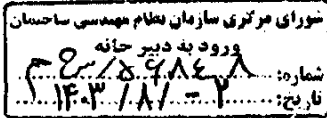 شورای مرکزی سازمان نظام مهندسی ساختمان
ورود به دبیر خانه
شماره:
تاریخ: ۱۴۰۳/۸/۲